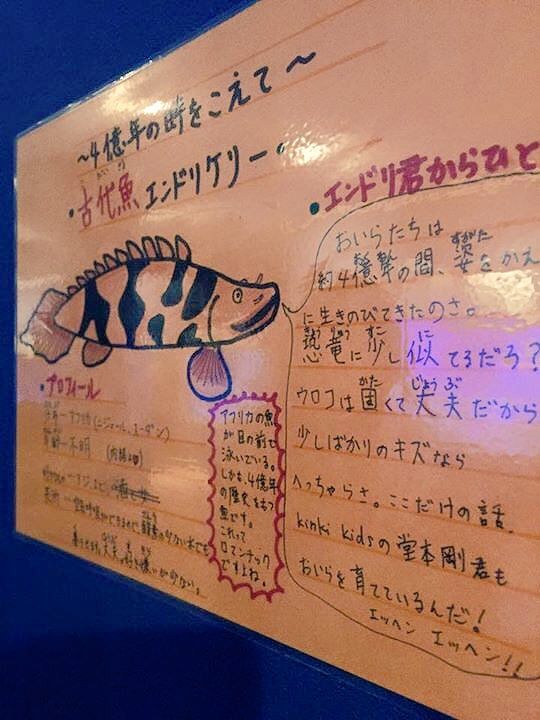 ～4億年の時をこえて～
・古代魚 エンドリケリー・
・プロフィール
アフリカの魚
が目の前で
泳いでいる。
しかも、4億年
の歴史をもつ
魚です。
これって
ロマンチック
ですよね。
・エンドリ君からひと
おいらたちは
約4億年の間、姿をかえ
に生きのびてきたのさ。
恐竜に少し似てるだろ?
ウロコは固くて丈夫だから
少しばかりのキズなら
へっちゃらさ。ここだけの話、
kinki kidsの堂本剛君も
おいらを育てているんだ!
エッヘン エッヘン!!